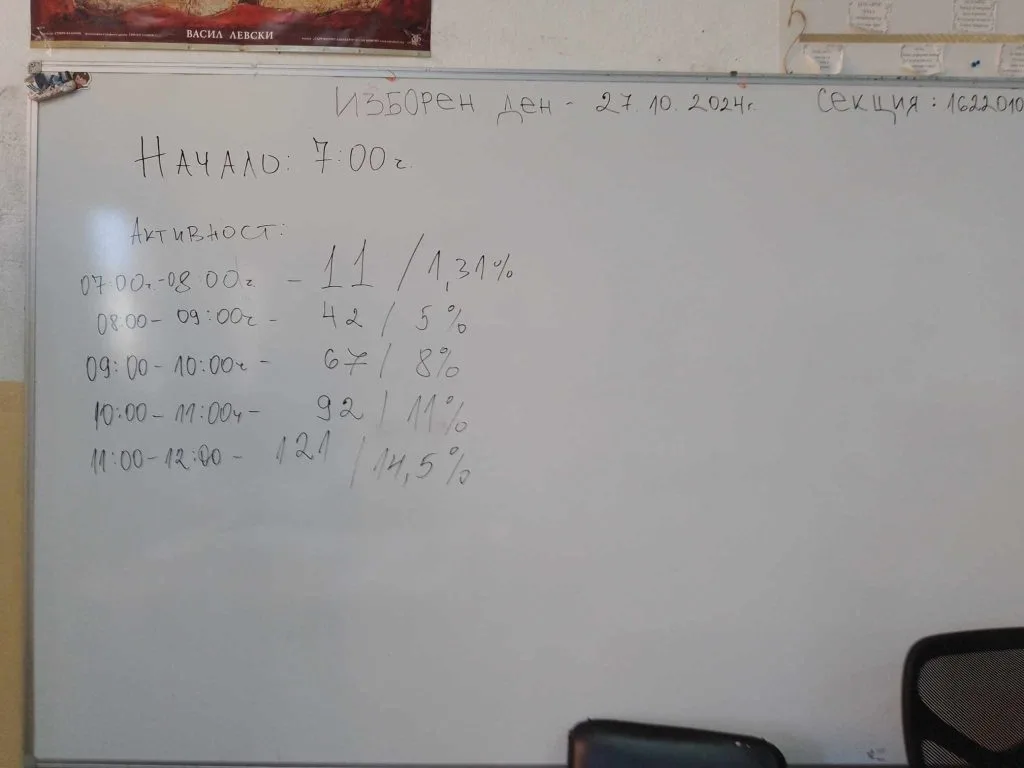 ВАСИЛ ЛЕВСКИ
ИЗБОРЕН ДЕН - 27.10.2024г. СЕКЦИЯ: 1622010
НАЧАЛО: 7:00 ч.
АКТИВНОСТ:
07:00ч.-08:00ч. - 11 / 1,31%
08:00 - 09:00ч - 42 / 5%
09:00 - 10:00ч - 67 / 8%
10:00 - 11:00ч - 92 / 11%
11:00 - 12:00 - 121 / 14,5%